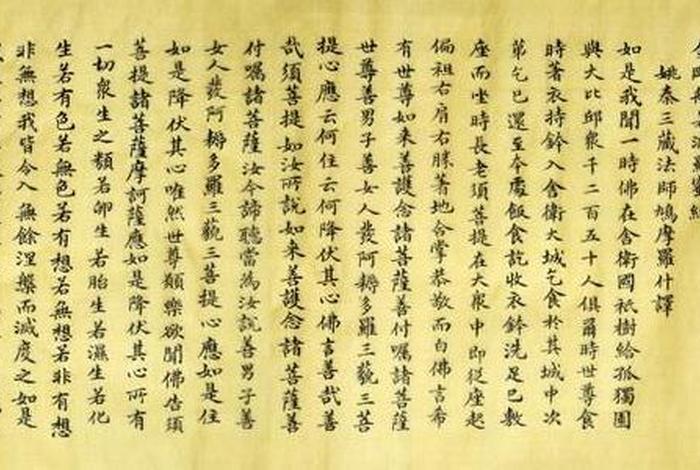 姚秦三藏法師鳩摩羅什譯
如是我聞一時佛在舍衛國祇樹給孤獨園
與大比邱眾千二百五十人俱爾時世尊食
時著衣持鉢入舍衛大城乞食於其城中次
第乞已還至本處飯食訖收衣鉢洗足已敷
座而坐時長老須菩提在大眾中即從座起
偏袒右肩右膝著地合掌恭敬而白佛言希
有世尊如來善護念諸菩薩善付囑諸菩薩
世尊善男子善女人發阿耨多羅三藐三菩
提心應云何住云何降伏其心佛言善哉善
哉須菩提如汝所說如來善護念諸菩薩善
付囑諸菩薩汝今諦聽當為汝說善男子善
女人發阿耨多羅三藐三菩提心應如是住
如是降伏其心唯然世尊願樂欲聞佛告須
菩提諸菩薩摩訶薩應如是降伏其心所有
一切眾生之類若卵生若胎生若濕生若化
生若有色若無色若有想若無想若非有想
非無想我皆令入無餘涅槃而滅度之如是